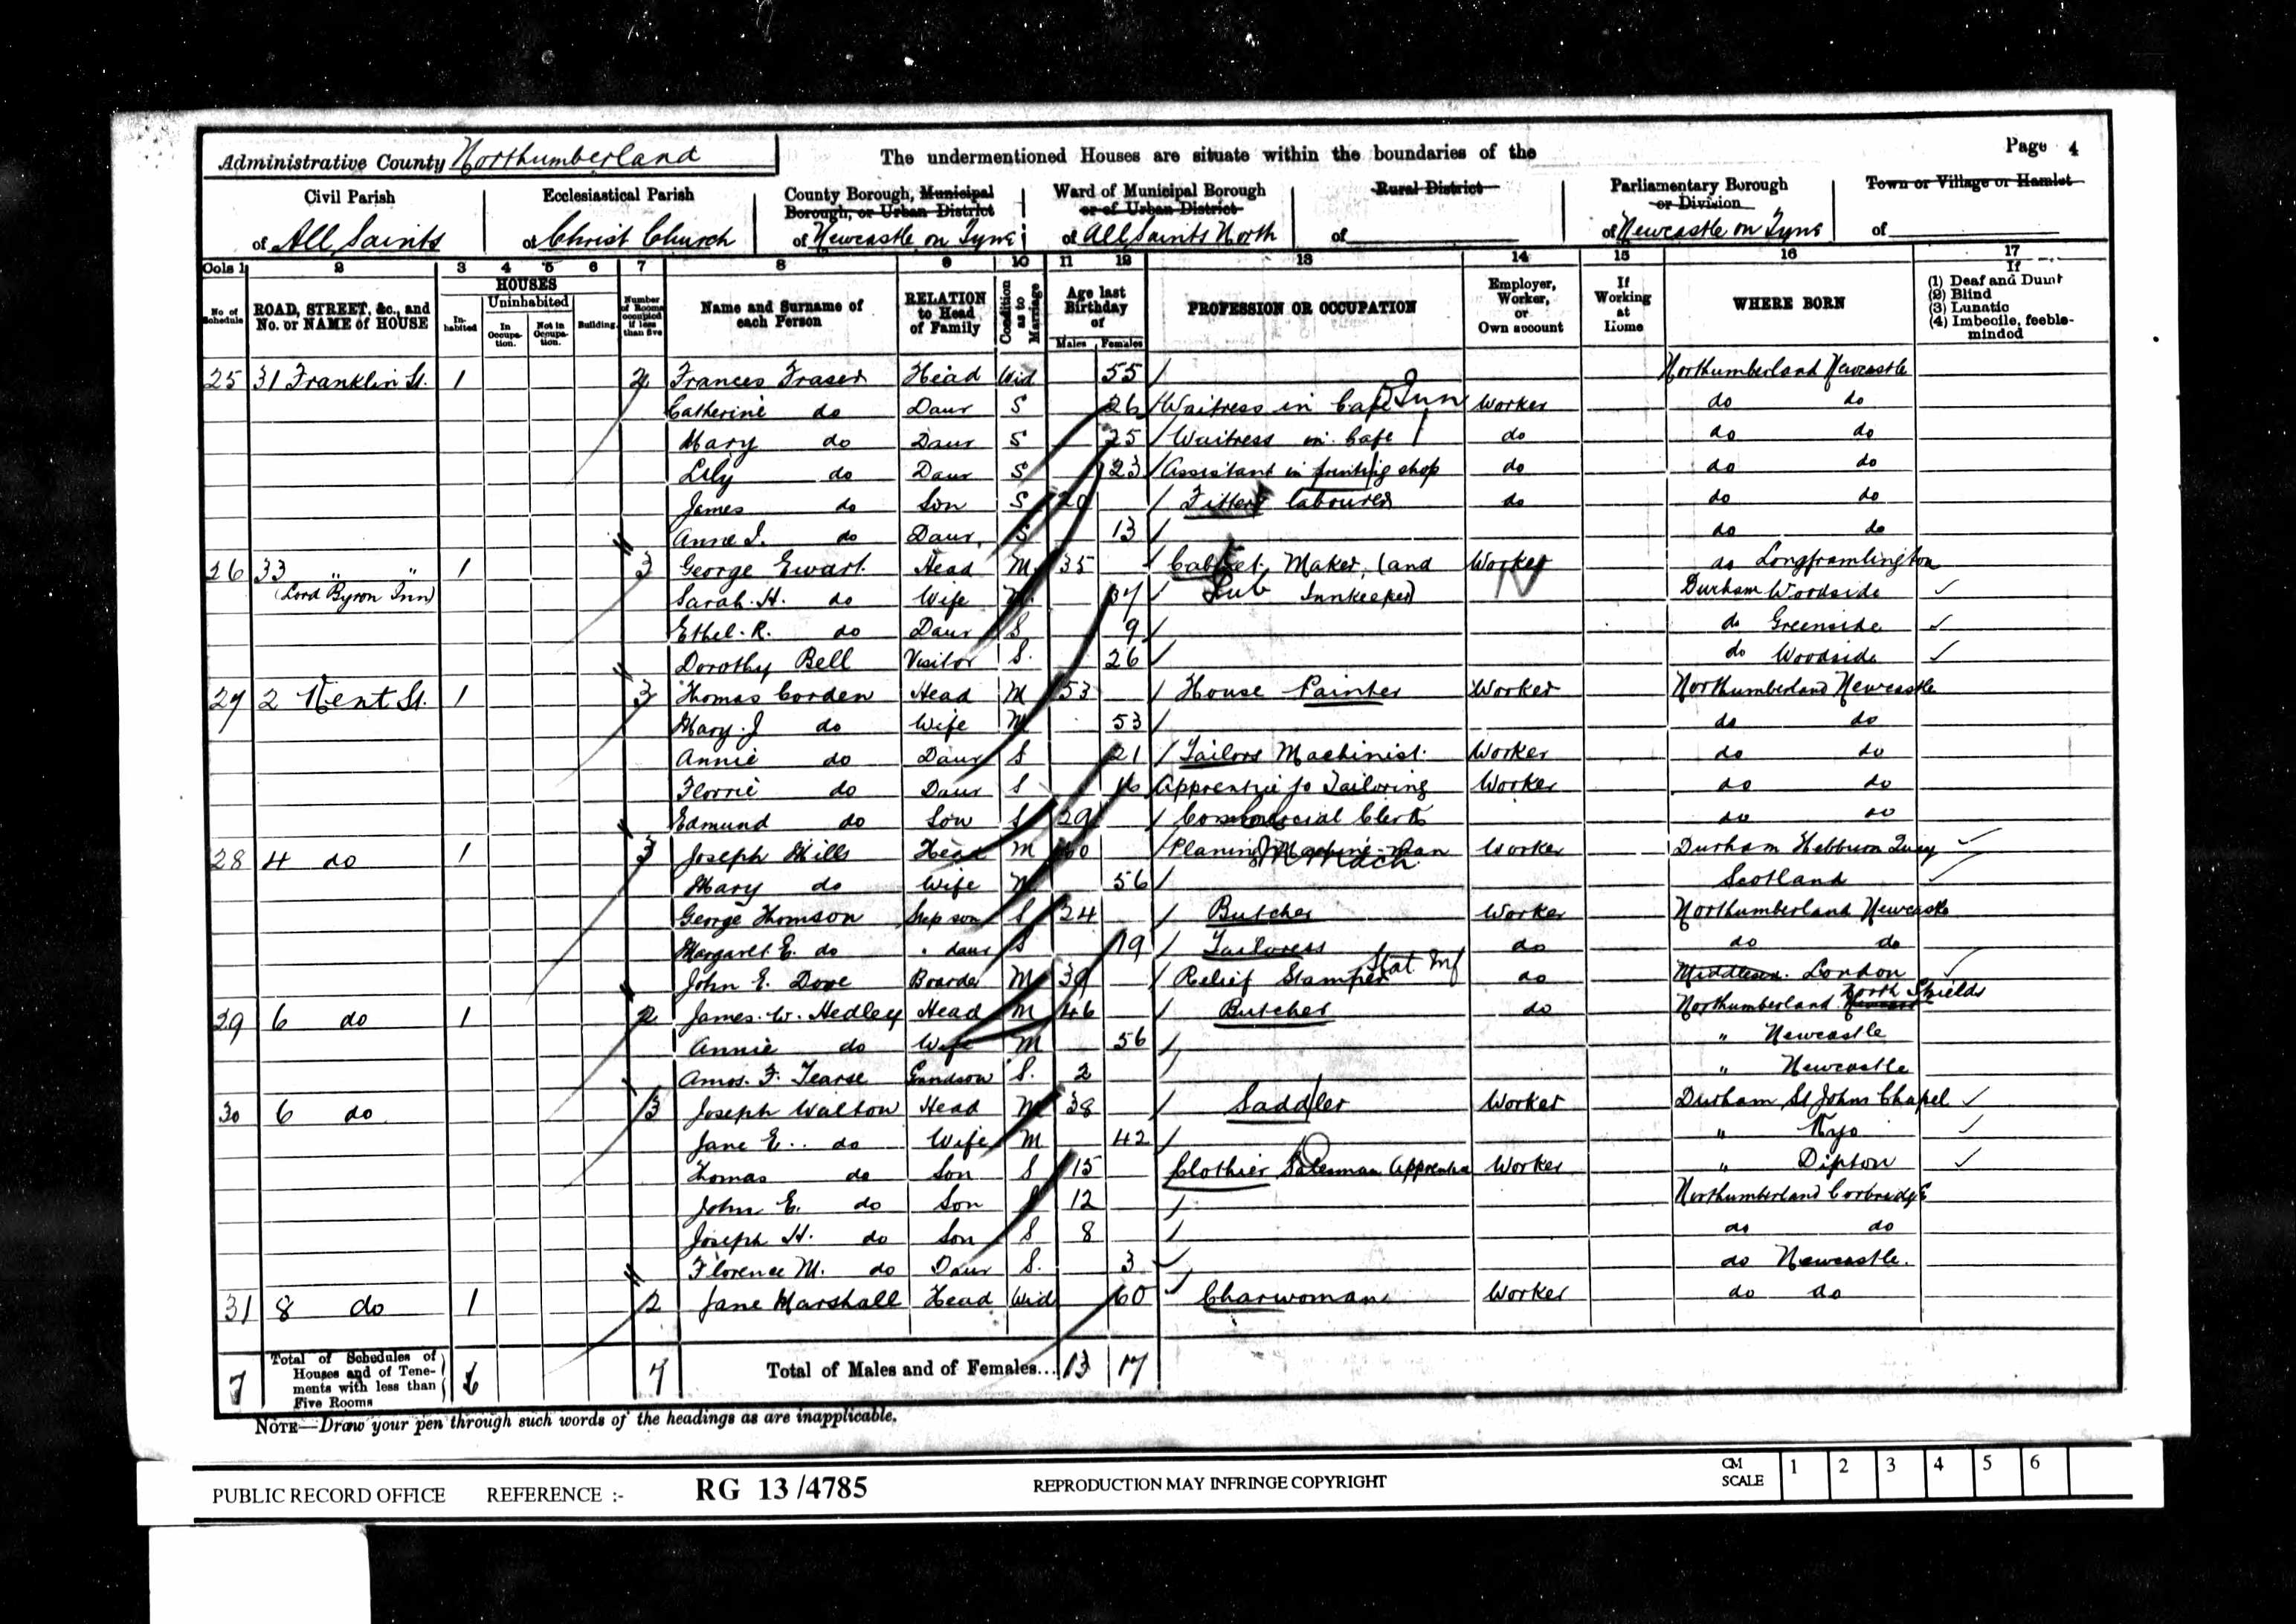 Administrative County Northumberland
The undermentioned Houses are situate within the boundaries of the
Page 4
Civil Parish
of All Saints
Ecclesiastical Parish
of Christ Church
County Borough, Municipal
Borough, or Urban District
of Newcastle on Tyne
Ward of Municipal Borough
or of Urban District
of All Saints North
Rural District
of
Parliamentary Borough
or Division
of Newcastle on Tyne
Town or Village or Hamlet
of
Cols 1 2 3 4 5 6 7 8 9 10 11 12 13 14 15 16 17
No. of Schedule
ROAD, STREET, &c., and No. or NAME of HOUSE
HOUSES
Inhabited
Uninhabited
In Occupation.
Not in Occupation.
Building.
Number of Rooms occupied if less than five
Name and Surname of each Person
RELATION to Head of Family
Condition as to Marriage
Age last Birthday of
Males Females
PROFESSION OR OCCUPATION
Employer, Worker, or Own account
If Working at Home
WHERE BORN
If
(1) Deaf and Dumb
(2) Blind
(3) Lunatic
(4) Imbecile, feeble-minded
25 31 Franklin St. 1 Frances Fraser Head Wid 55 Northumberland Newcastle
Catherine do Daur S 26 Waitress in Cafe Inn Worker do do
Mary do Daur S 25 Waitress in Cafe do do do
Lily do Daur S 23 Assistant in printing shop do do do
James do Son S 20 Fitters labourer do do do
Anne I. do Daur. S 13 do do
26 33 " " 1 3 George Ewart Head M 35 Cabinet Maker, (and Worker do Longframlington
(Lord Byron Inn) Sarah. H. do Wife M 37 Sub Innkeeper) Durham Woodside
Ethel. R. do Daur S 9 do Greenside
Dorothy Bell Visitor S. 26 do Woodside
27 2 Kent St. 1 3 Thomas Corden Head M 53 House Painter Worker Northumberland Newcastle
Mary. J do Wife M 53 do do
Annie do Daur S 21 Tailors Machinist Worker do do
Florrie do Daur S 16 Apprentice to Tailoring Worker do do
Edmund do Son S 29 Commercial Clerk do do
28 4 do 1 3 Joseph Mills Head M 60 Planing Machine-man Worker Durham Hebburn Quay
Mary do Wife M 56 Scotland
George Thomson Step son S 24 Butcher Worker Northumberland Newcastle
Margaret E. do " daur S 19 Tailoress do do do
John E. Dove Boarder M 39 Relief Stamper Stat Mf do Middlesex. London
29 6 do 1 2 James. W. Hedley Head M 46 Butcher do Northumberland North Shields
Annie do Wife M 56 " Newcastle
Amos. F. Tearse Grandson S. 2 " Newcastle
30 6 do 3 Joseph Walton Head M 38 Saddler Worker Durham St Johns Chapel
Jane E. do Wife M 42 " Kyo
Thomas do Son S 15 Clothier Salesman Apprentice Worker " Dipton
John E. do Son S 12 Northumberland Corbridge
Joseph H. do Son S 8 do do
Florence M. do Daur S. 3 do Newcastle.
31 8 do 1 2 Jane Marshall Head Wid 60 Charwoman Worker do do
7 Total of Schedules of Houses and of Tenements with less than Five Rooms 6 7 Total of Males and of Females... 13 17
NOTE—Draw your pen through such words of the headings as are inapplicable.
PUBLIC RECORD OFFICE REFERENCE :- RG 13/4785 REPRODUCTION MAY INFRINGE COPYRIGHT CM SCALE 1 2 3 4 5 6